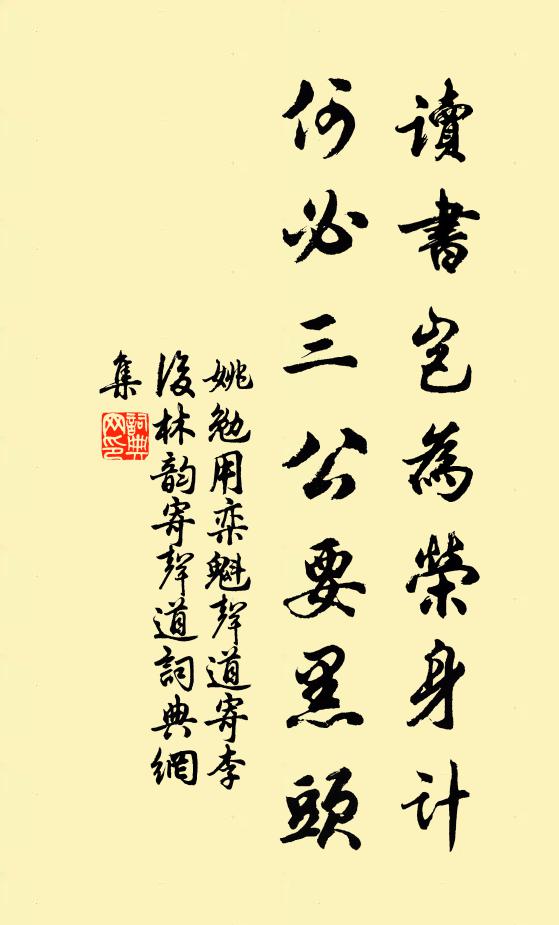 讀書豈為榮身計
何必三公要黑頭
姚勉用奕魁聲道寄李
後林韵寄聲道詞典網
集
詞典
网印